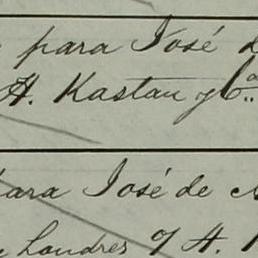 para José d
H. Kastau y Cª.
para José de
Londres y H.